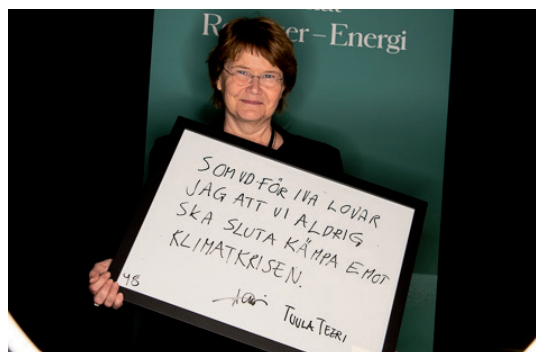 Energi
SOM VD FÖR IVA LOVAR
JAG ATT VI ALDRIG
SKA SLUTA KÄMPA EMOT
KLIMATKRISEN.
48
TUULA TEERI